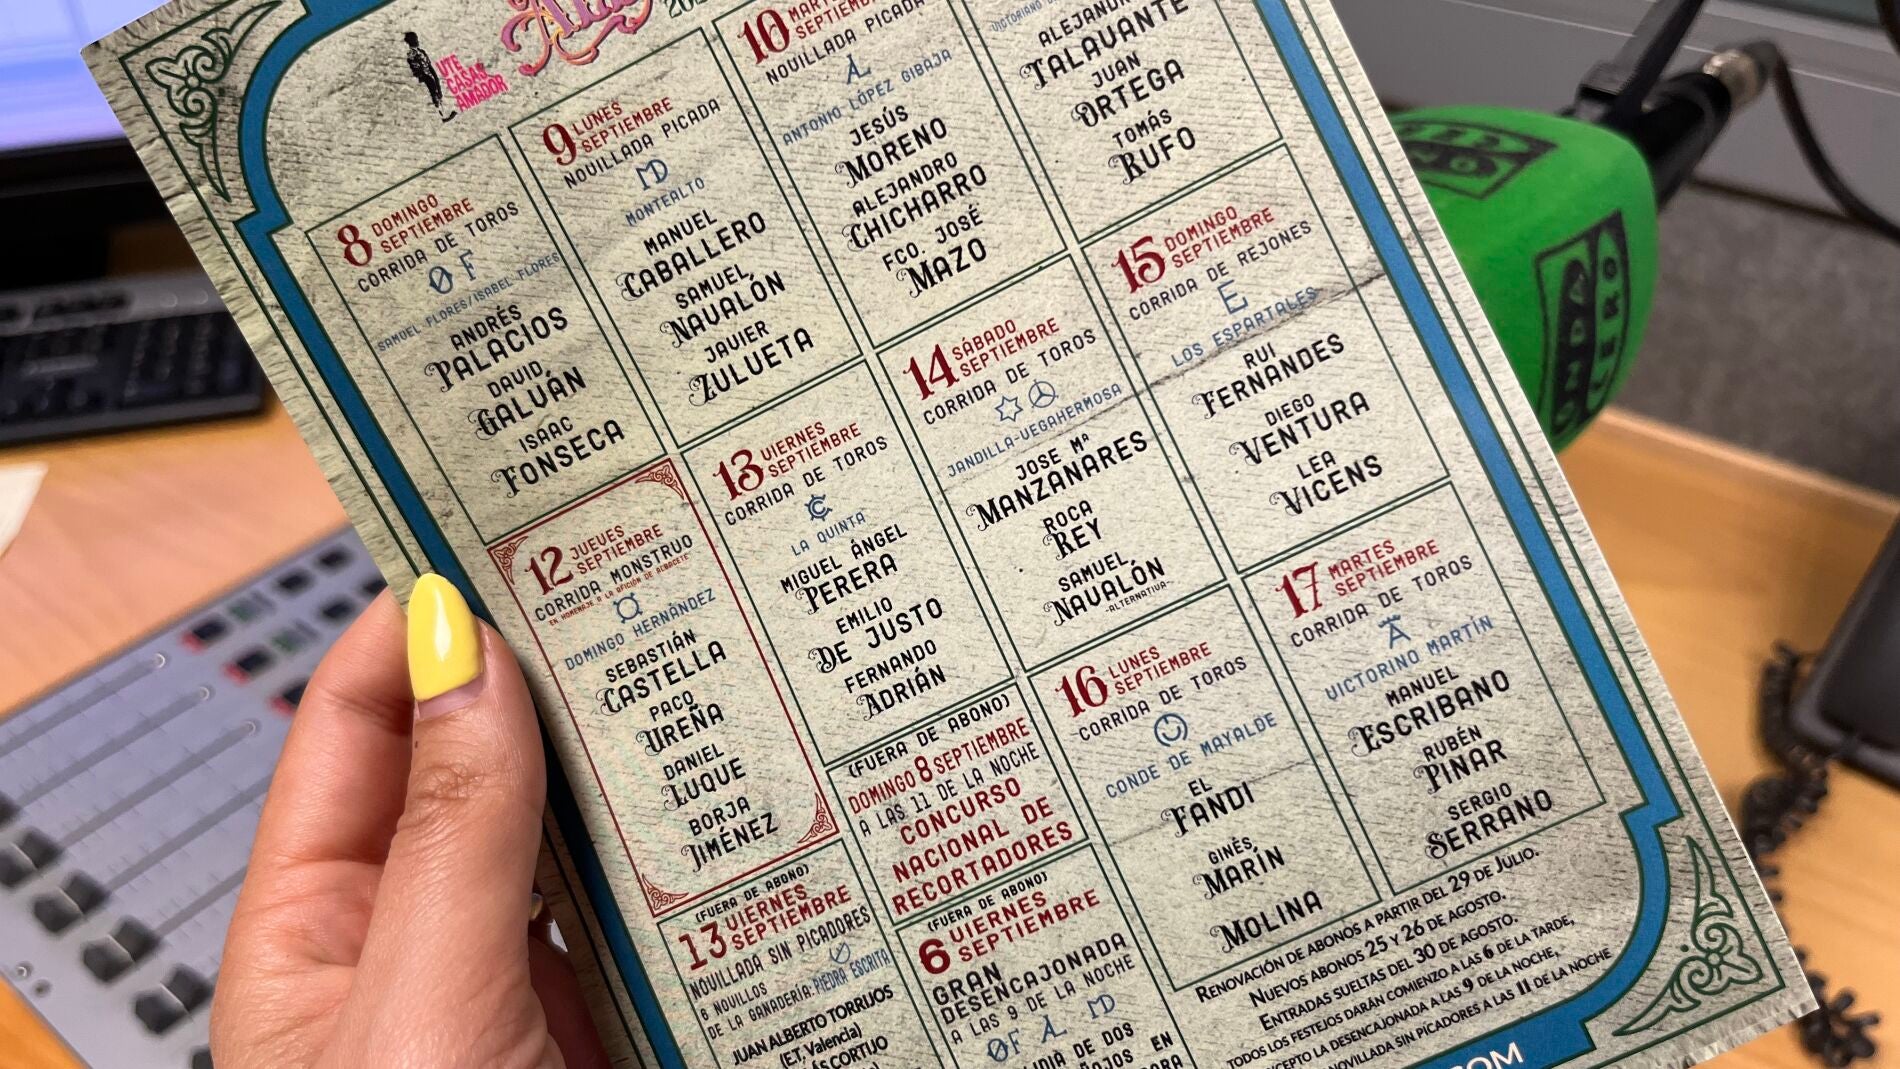 UTE
CASAS
AMADOR
8 DOMINGO
SEPTIEMBRE
CORRIDA DE TOROS
SAMUEL FLORES/ISABEL FLORES
ANDRÉS
PALACIOS
DAVID
GALVÁN
ISAAC
FONSECA
9 LUNES
SEPTIEMBRE
NOVILLADA PICADA
MONTEALTO
MANUEL
CABALLERO
SAMUEL
NAVALÓN
JAVIER
ZULUETA
10
NOVILLADA PICADA
ANTONIO LÓPEZ GIBAJA
JESÚS
MORENO
ALEJANDRO
CHICHARRO
FCO. JOSÉ
MAZO
TALAVANTE
JUAN
ORTEGA
TOMÁS
RUFO
12 JUEVES
SEPTIEMBRE
CORRIDA MONSTRUO
EN HOMENAJE A LA AFICIÓN DE ALBACETE
DOMINGO HERNÁNDEZ
SEBASTIÁN
CASTELLA
PACO
UREÑA
DANIEL
LUQUE
BORJA
JIMÉNEZ
13 VIERNES
SEPTIEMBRE
CORRIDA DE TOROS
LA QUINTA
MIGUEL ÁNGEL
PERERA
EMILIO
DE JUSTO
FERNANDO
ADRIÁN
14 SÁBADO
SEPTIEMBRE
CORRIDA DE TOROS
JANDILLA-VEGAHERMOSA
JOSE Mª
MANZANARES
ROCA
REY
SAMUEL
NAVALÓN
-ALTERNATIVA-
15 DOMINGO
SEPTIEMBRE
CORRIDA DE REJONES
E
LOS ESPARTALES
RUI
FERNANDES
DIEGO
VENTURA
LEA
VICENS
16 LUNES
SEPTIEMBRE
CORRIDA DE TOROS
CONDE DE MAYALDE
EL
FANDI
GINÉS
MARÍN
MOLINA
17 MARTES
SEPTIEMBRE
CORRIDA DE TOROS
VICTORINO MARTÍN
MANUEL
ESCRIBANO
RUBÉN
PINAR
SERGIO
SERRANO
(FUERA DE ABONO)
DOMINGO 8 SEPTIEMBRE
A LAS 11 DE LA NOCHE
CONCURSO
NACIONAL DE
RECORTADORES
(FUERA DE ABONO)
13 VIERNES
SEPTIEMBRE
NOVILLADA SIN PICADORES
6 NOVILLOS
DE LA GANADERÍA: PIEDRA ESCRITA
JUAN ALBERTO TORRIJOS
(E.T. Valencia)
CORTIJO
(FUERA DE ABONO)
6 VIERNES
SEPTIEMBRE
GRAN
DESENCAJONADA
A LAS 9 DE LA NOCHE
DE DOS
EN
RENOVACIÓN DE ABONOS A PARTIR DEL 29 DE JULIO.
NUEVOS ABONOS 25 Y 26 DE AGOSTO.
ENTRADAS SUELTAS DEL 30 DE AGOSTO.
TODOS LOS FESTEJOS DARÁN COMIENZO A LAS 6 DE LA TARDE,
LA DESENCAJONADA A LAS 9 DE LA NOCHE,
NOVILLADA SIN PICADORES A LAS 11 DE LA NOCHE
.COM
ONDA
CERO